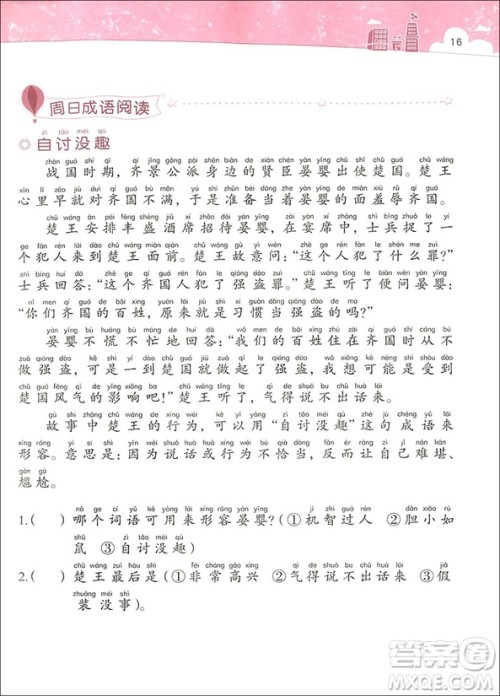 16
周日成语阅读
zì tǎo méi qù
自讨没趣
zhàn guó shí qī qí jǐng gōng pài shēn biān de xián chén yàn yīng chū shǐ chǔ guó chǔ wáng
战国时期，齐景公派身边的贤臣晏婴出使楚国。楚王
xīn lǐ zǎo jiù duì qí guó bù mǎn yú shì zhǔn bèi dāng zhe yàn yīng de miàn xiū rǔ qí guó
心里早就对齐国不满，于是准备当着晏婴的面羞辱齐国。
chǔ wáng ān pái fēng shèng jiǔ xí zhāo dài yàn yīng zài yàn xí zhōng shì bīng zhuō le yí
楚王安排丰盛酒席招待晏婴，在宴席中，士兵捉了一
gè fàn rén lái dào chǔ wáng miàn qián chǔ wáng gù yì wèn zhè ge fàn rén fàn le shén me zuì
个犯人来到楚王面前。楚王故意问：“这个犯人犯了什么罪？”
shì bīng huí dá zhè ge qí guó rén fàn le qiáng dào zuì chǔ wáng tīng le biàn wèn yàn yīng
士兵回答：“这个齐国人犯了强盗罪。”楚王听了便问晏婴：
nǐ men qí guó de bǎi xìng yuán lái jiù shì xí guàn dāng qiáng dào de ma
“你们齐国的百姓，原来就是习惯当强盗的吗？”
yàn yīng bù huāng bù máng de huí dá wǒ men de bǎi xìng zhù zài qí guó shí cóng bú
晏婴不慌不忙地回答：“我们的百姓住在齐国时从不
zuò qiáng dào kě shì yí dào chǔ guó jiù biàn chéng le qiáng dào kě néng shì shòu dào
做强盗，可是一到楚国就变成了强盗，可能是受到
chǔ guó fēng qì de yǐng xiǎng ba chǔ wáng tīng le qì de shuō bu chū huà lái
楚国风气的影响吧！”楚王听了，气得说不出话来。
gù shi zhōng chǔ wáng de xíng wéi kě yǐ yòng zì tǎo méi qù zhè jù chéng yǔ lái
故事中楚王的行为，可以用“自讨没趣”这句成语来
xíng róng yì si shì yīn wèi shuō huà huò xíng wéi bù dàng fǎn ér ràng zì jǐ nán kān
形容。意思是：因为说话或行为不当，反而让自己难堪、
gān gà
尴尬。
nǎ ge cí yǔ kě yòng lái xíng róng yàn yīng jī zhì guò rén dǎn xiǎo rú
1.(　　)哪个词语可用来形容晏婴？(①机智过人 ②胆小如
shǔ zì tǎo méi qù
鼠 ③自讨没趣)
chǔ wáng zuì hòu shì fēi cháng gāo xìng qì de shuō bu chū huà lái jiǎ
2.(　　)楚王最后是(①非常高兴 ②气得说不出话来 ③假
zhuāng méi shì
装没事)。
答案圈
MXQE.COM